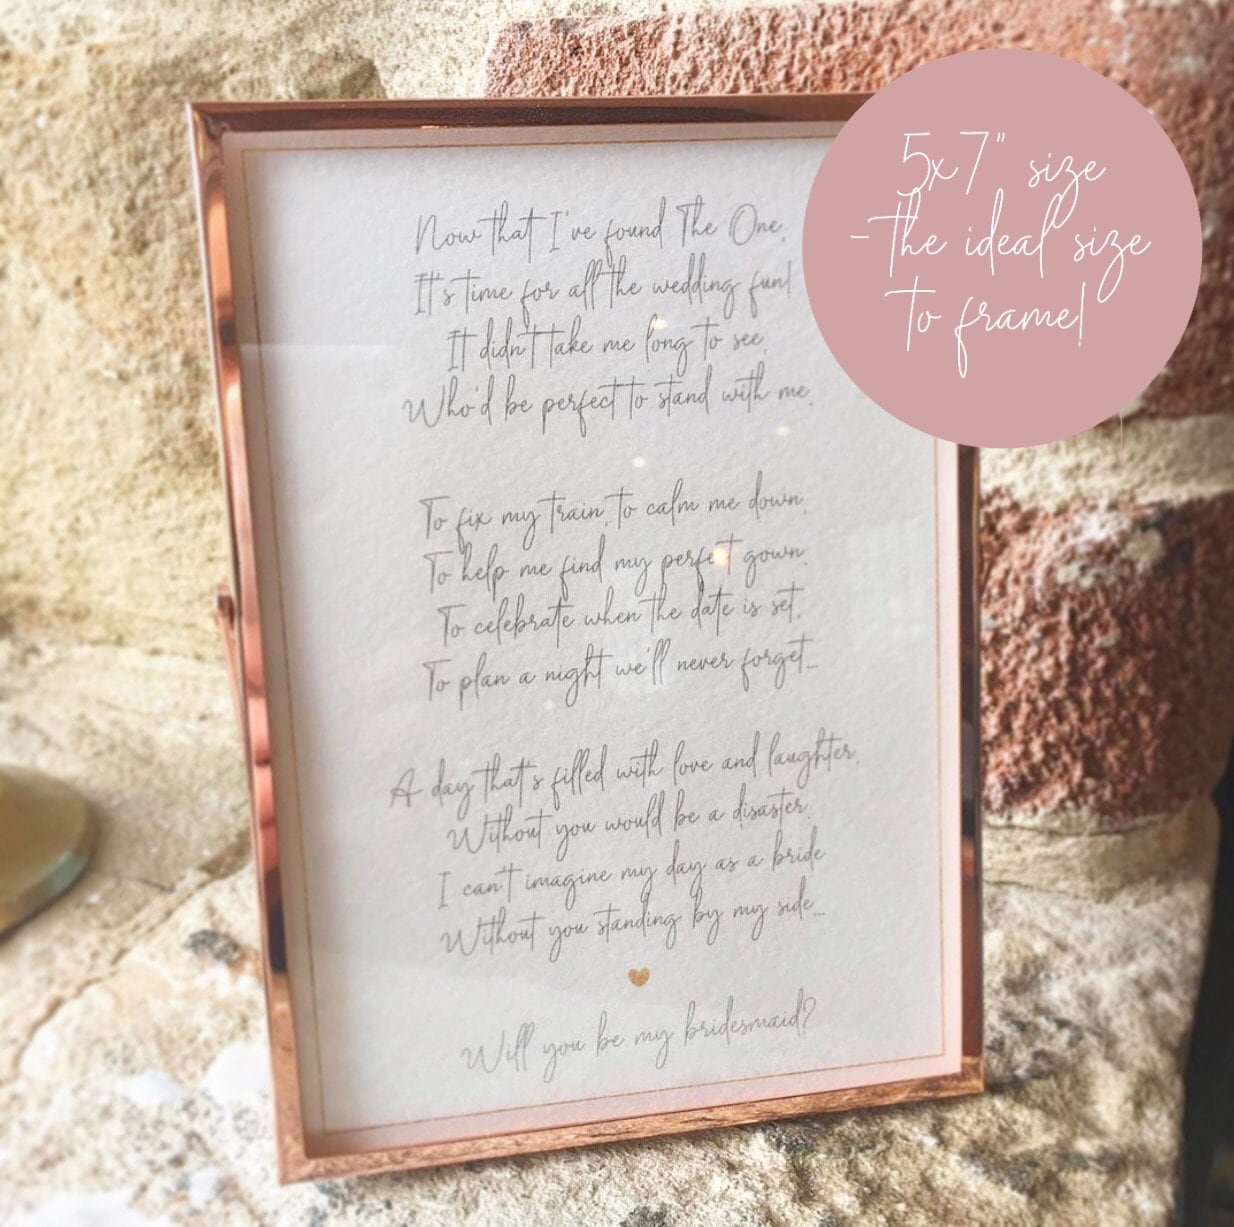 Now that I've found The One,
It's time for all the wedding fun!
It didn't take me long to see,
Who'd be perfect to stand with me.
To fix my train, to calm me down,
To help me find my perfect gown.
To celebrate when the date is set,
To plan a night we'll never forget...
A day that's filled with love and laughter,
Without you would be a disaster.
I can't imagine my day as a bride
Without you standing by my side...
Will you be my bridesmaid?
5x7" size
-the ideal size
to frame!